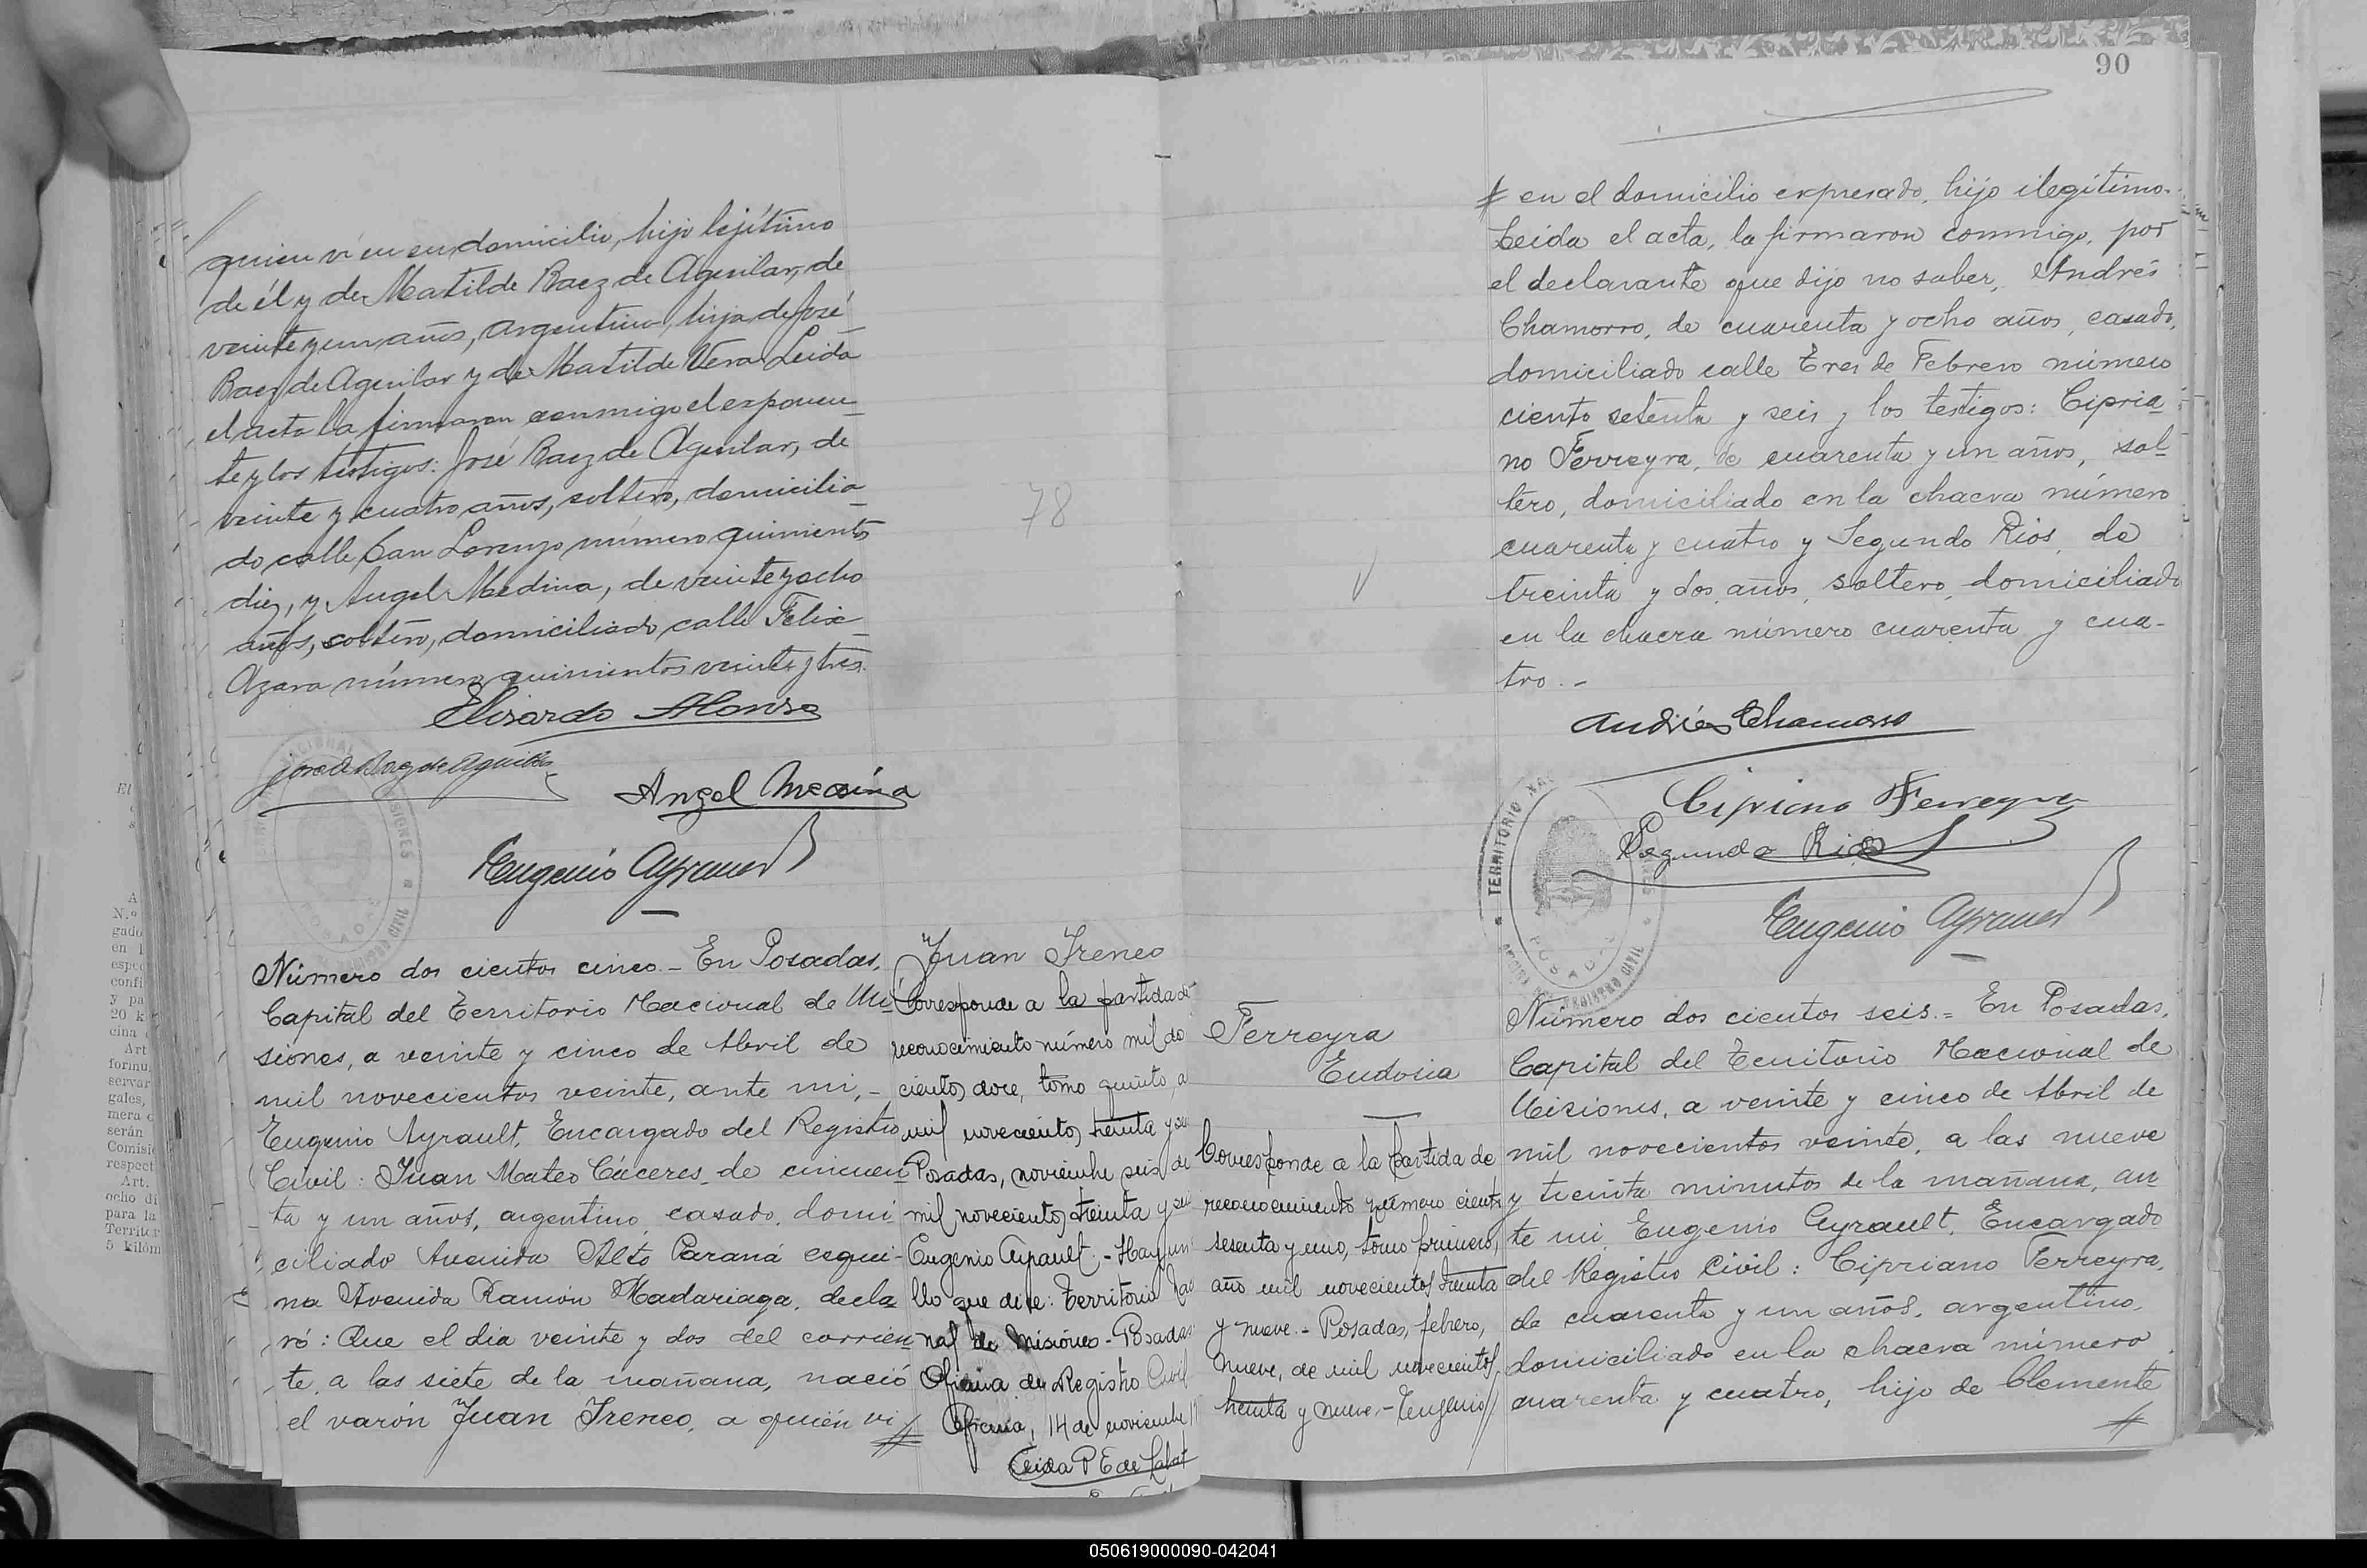 quien ví en su domicilio, hijo lejítimo
de él y de Matilde Baez de Aguilar, de
veinte y un años, argentina, hija de José
Baez de Aguilar y de Matilde Vera. Leida
el acta la firmaron conmigo el exponen-
te y los testigos: José Baez de Aguilar, de
veinte y cuatro años, soltero, domicilia-
do calle San Lorenzo número quinientos
diez, y Angel Medina, de veinte y ocho
años, soltero, domiciliado calle Felix
Azara número quinientos veinte y tres.
Elisardo Alonso
José Baez de Aguilar
Angel Medina
Eugenio Ayrault
78
Número dos cientos cinco.- En Posadas,
Capital del Territorio Nacional de Mi-
siones, a veinte y cinco de Abril de
mil novecientos veinte, ante mi,-
Eugenio Ayrault, Encargado del Registro
Civil: Juan Mateo Cáceres, de cincuen-
ta y un años, argentino, casado, domi
ciliado Avenida Alto Paraná esqui-
na Avenida Ramón Madariaga, decla
ró: Que el dia veinte y dos del corrien-
te, a las siete de la mañana, nació
el varón Juan Ireneo, a quién vi
Juan Ireneo
Corresponde a la partida de
reconocimiento número mil do
cientos doce, tomo quinto, a
mil novecientos treinta y
Posadas, noviembre seis de
mil novecientos treinta y
Eugenio Ayrault.- Hay un
llo que dice: Territorio Nac
nal de Misiones - Posadas
Oficina del Registro Civil
Oficina, 14 de noviembre
90
en el domicilio expresado, hijo ilegítimo.
Leida el acta, la firmaron conmigo, por
el declarante que dijo no saber, Andrés
Chamorro, de cuarenta y ocho años, casado,
domiciliado calle Tres de Febrero número
ciento setenta y seis y los testigos: Cipria
no Ferreyra, de cuarenta y un años, sol
tero, domiciliado en la chacra número
cuarenta y cuatro y Segundo Rios, de
treinta y dos años, soltero, domiciliado
en la chacra número cuarenta y cua-
tro.-
Andrés Chamorro
Cipriano Ferreyra
Segundo Rios
TERRITORIO NA
POSADAS
REGISTRO CIVIL
Eugenio Ayrault
Ferreyra
Eudosia
Corresponde a la partida de
reconocimiento número ciento
sesenta y uno, tomo primero,
año mil novecientos treinta
y nueve.- Posadas, febrero,
nueve, de mil novecientos
treinta y nueve.- Eugenio//
Número dos cientos seis.= En Posadas,
Capital del Territorio Nacional de
Misiones, a veinte y cinco de Abril de
mil novecientos veinte, a las nueve
y treinta minutos de la mañana, an
te mi, Eugenio Ayrault, Encargado
del Registro Civil: Cipriano Ferreyra,
de cuarenta y un años, argentino,
domiciliado en la chacra número
cuarenta y cuatro, hijo de Clemente
050619000090-042041